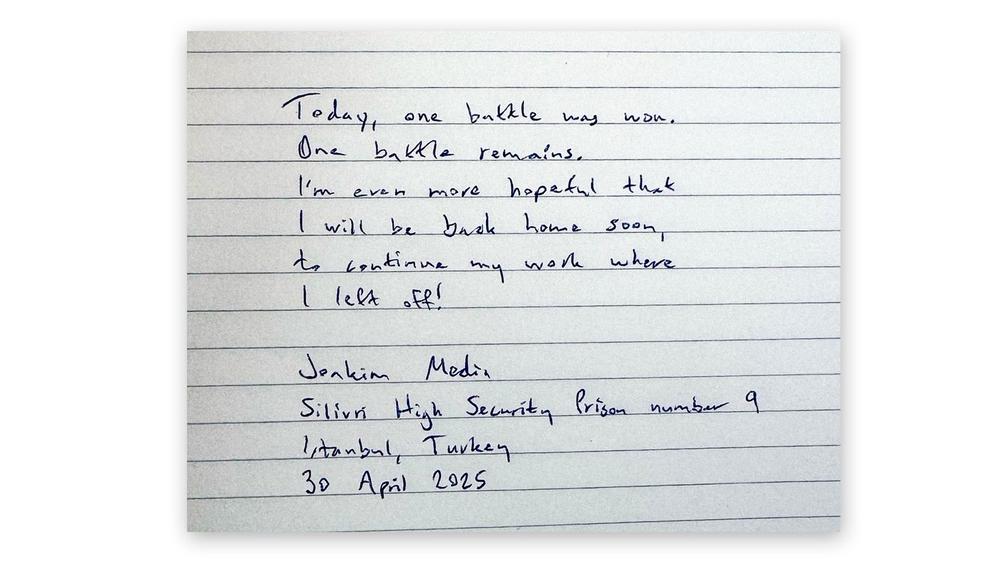 Today, one battle was won.
One battle remains.
I'm even more hopeful that
I will be back home soon,
to continue my work where
I left off!
Joakim Medin
Silivri High Security Prison number 9
Istanbul, Turkey
30 April 2025